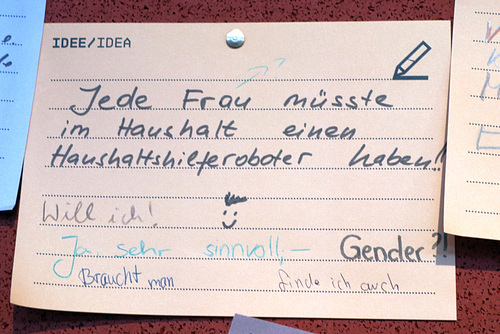 IDEE/IDEA
Jede Frau müsste
im Haushalt einen
Haushaltshilferoboter haben!!
Will ich!
Ja sehr sinnvoll,–
Gender?!
Braucht man
finde ich auch